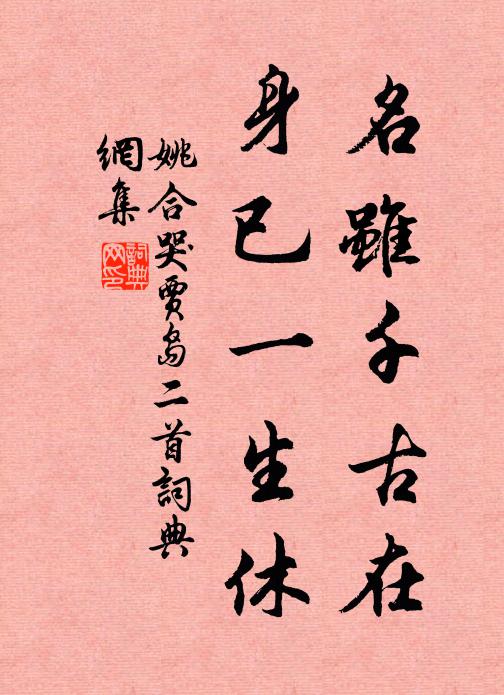 名雖千古在
身已一生休
姚合哭賈島二首詞典
網集
詞典
网印